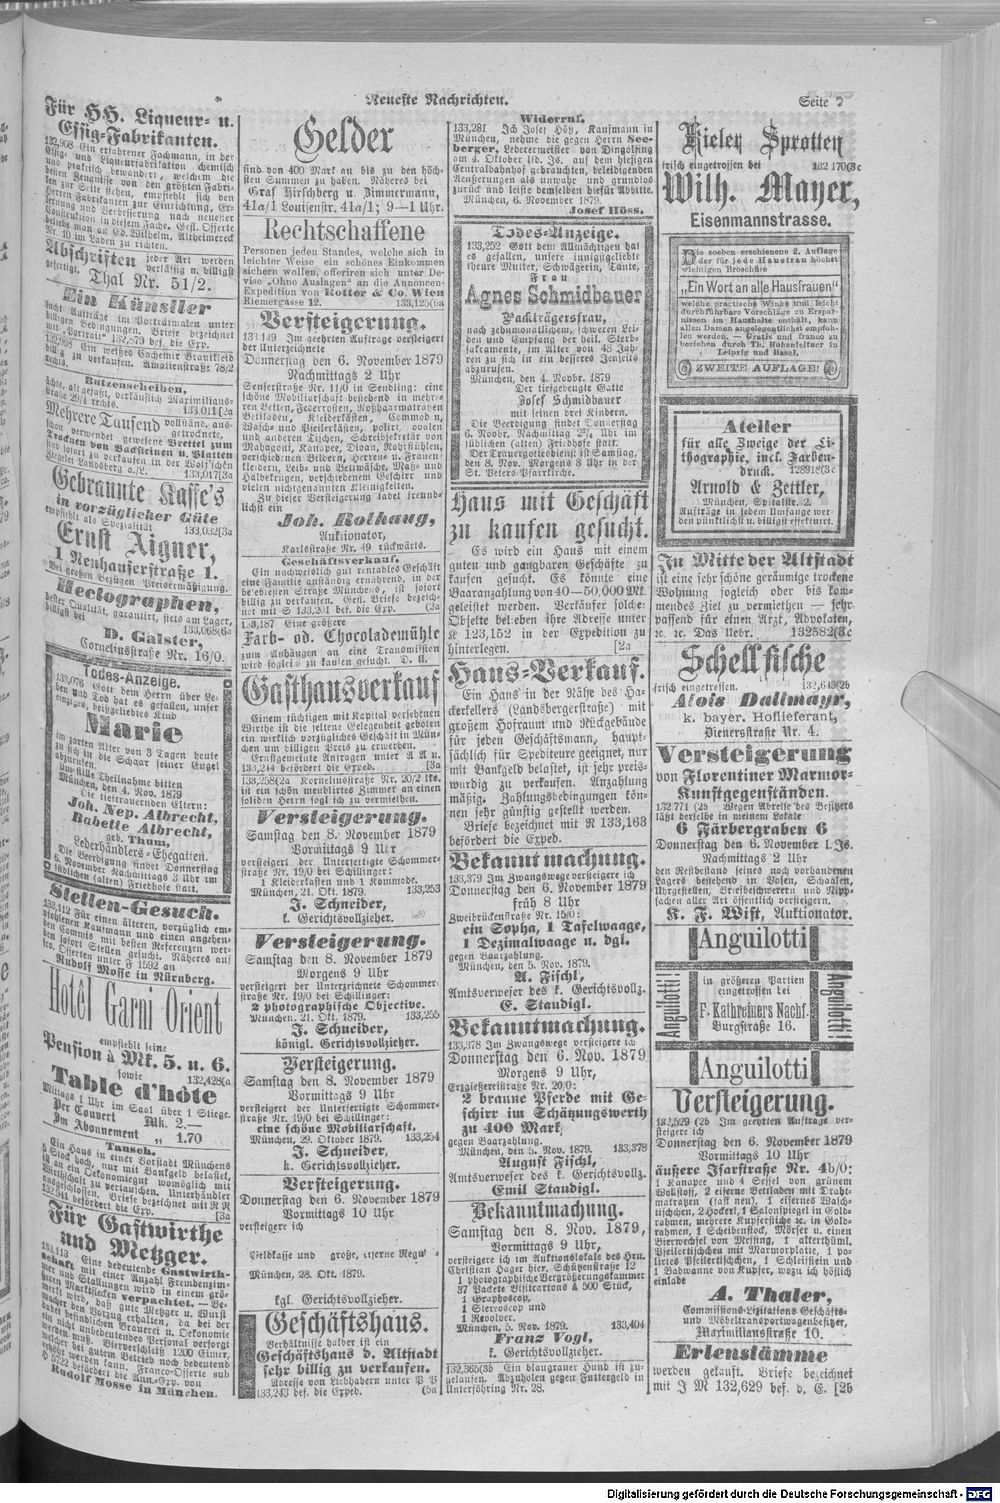 Neueste Nachrichten.
Seite 7
Für HH. Liqueur- u.
Essig-Fabrikanten.
132,908 Ein erfahrener Fachmann, in der
Essig- und Liqueurfabrikation chemisch
und praktisch bewandert, welchem die
besten Zeugnisse von den größten Fabri-
ken zur Seite stehen, empfiehlt sich den
Herren Fabrikanten zur Einrichtung, Er-
lernung und Verbesserung nach neuester
Construktion in diesem Fache. Gefl. Offerte
beliebe man an Ed. Wilhelm, Altheimereck
Nr. 10 im Laden zu richten.
Abschriften jeder Art werden
gefertigt. verlässig u. billigst
Thal Nr. 51/2.
Ein Künstler
sucht Aufträge im Porträtmalen unter
billigen Bedingungen. Briefe bezeichnet
mit „Portrait“ 132,579 bef. die Exp.
132,968 Ein weißes Cachemir Brautkleid
billig zu verkaufen. Amalienstraße 78/2
rechts.
Butzenscheiben,
ächte, alt gefaßt, verkäuflich Maximilians-
straße 29/1 rechts. 133,011[2a
Mehrere Tausend vollständ. aus-
getrocknete,
schon verwendet gewesene Brettel zum
Trocknen von Backsteinen u. Platten
sind sofort zu verkaufen in der Wolf'schen
Ziegelei Landsberg a./L. 133,017[3a
Gebrannte Kaffe's
in vorzüglicher Güte
empfiehlt als Spezialität 133,032[3a
Ernst Aigner,
1 Neuhauserstraße 1.
Bei großen Bezügen Preisermäßigung.
Hectographen,
bester Qualität, garantirt, stets am Lager,
billigst bei 133,068[6a
D. Galster,
Corneliusstraße Nr. 16/0.
Todes-Anzeige.
133,076 Gott dem Herrn über Le-
ben und Tod hat es gefallen, unser
einziges, heißgeliebtes Kind
Marie
im zarten Alter von 3 Tagen heute
zu sich in die Schaar seiner Engel
abzurufen.
Um stille Theilnahme bitten
München, den 4. Nov. 1879
Die tieftrauernden Eltern:
Joh. Nep. Albrecht,
Babette Albrecht,
geb. Thum,
Lederhändlers-Ehegatten.
Die Beerdigung findet Donnerstag
6. November Nachmittags 3 Uhr im
südlichen (alten) Friedhofe statt.
Stellen-Gesuch.
133,112 Für einen älteren, vorzüglich em-
pfohlenen Kaufmann und einen angehen-
den Commis mit besten Referenzen wer-
den sofort Stellen gesucht. Näheres auf
fco. Offerten unter F 1592 an
Rudolf Mosse in Nürnberg.
Hotel Garni Orient
empfiehlt seine
Pension à Mk. 5. u. 6.
sowie 132,428(a
Table d'hôte
Mittags 1 Uhr im Saal über 1 Stiege.
Per Couvert Mk. 2.—
Im Abonnement „ 1.70
Tausch.
Ein Haus in einer Vorstadt Münchens
5 Stock hoch, nur mit Bankgeld belastet,
ist an ein Oekonomiegut womöglich mit
Wirthschaft zu vertauschen. Unterhändler
ausgeschlossen. Briefe bezeichnet mit R R
132,941 befördert die Exp. [3a
Für Gastwirthe
und Metzger.
133,113 Eine bedeutende Gastwirth-
schaft mit einer Anzahl Fremdenzim-
mer und Stallungen wird in einem grö-
ßeren Marktflecken verpachtet. — Be-
merkt wird, daß gute Metzger u. Wurst-
macher den Vorzug erhalten, da bei der
dabei befindlichen Brauerei u. Oekonomie
ein nicht unbedeutendes Personal versorgt
werden muß. Bierverschleiß 1200 Eimer,
welcher bei gutem Betrieb noch bedeutend
erhöht werden kann. Franco-Offerte sub
O 5722 befördert die Ann.-Exp. von
Rudolf Mosse in München.
Gelder
sind von 400 Mark an bis zu den höch-
sten Summen zu haben. Näheres bei
Graf Hirschberg u. Zimmermann,
41a/1 Louisenstr. 41a/1; 9—1 Uhr.
Rechtschaffene
Personen jeden Standes, welche sich in
leichter Weise ein schönes Einkommen
sichern wollen, offeriren sich unter De-
vise „Ohne Auslagen“ an die Annoncen-
Expedition von Rotter & Co. Wien
Riemergasse 12. 133,125(6a
Versteigerung.
133,149 Im geehrten Auftrage versteigert
der Unterzeichnete
Donnerstag den 6. November 1879
Nachmittags 2 Uhr
Senserstraße Nr. 11/0 in Sendling: eine
schöne Mobiliarschaft bestehend in mehre-
ren Betten, Federrosten, Roßhaarmatratzen
Bettladen, Kleiderkästen, Commoden,
Wasch- und Pfeilerkästen, polirt, ovalen
und anderen Tischen, Schreibsekretär von
Mahagoni, Kanapee, Divan, Rohrstühlen,
verschiedenen Bildern, Herren- u. Frauen-
kleidern, Leib- und Bettwäsche, Maß- und
Halbekrügen, verschiedenem Geschirr und
vielen nichtgenannten Kleinigkeiten.
Zu dieser Versteigerung ladet freund-
lichst ein
Joh. Rothaug,
Auktionator,
Karlsstraße Nr. 49 rückwärts.
Geschäftsverkauf.
Ein nachweislich gut rentables Geschäft
eine Familie anständig ernährend, in der
belebtesten Straße Münchens, ist sofort
billig zu verkaufen. Gefl. Briefe bezeich-
net mit S 133,201 bef. die Exp. (3a
133,187 Eine größere
Farb- od. Chocolademühle
zum Anhängen an eine Transmission
wird sogleich zu kaufen gesucht. D. U.
Gasthausverkauf
Einem tüchtigen mit Kapital versehenen
Wirthe ist die seltene Gelegenheit geboten
ein wirklich vorzügliches Geschäft in Mün-
chen um billigen Preis zu erwerben.
Ernstgemeinte Anfragen unter A A n.
133,244 befördert die Exped. [3a
133,258(2a Korneliusstraße Nr. 20/2 lks.
ist ein schön meublirtes Zimmer an einen
soliden Herrn sogleich zu vermiethen.
Versteigerung.
Samstag den 8. November 1879
Vormittags 9 Uhr
versteigert der Unterfertigte Schommer-
straße Nr. 19/0 bei Schillinger:
1 Kleiderkasten und 1 Kommode.
München, 21. Okt. 1879. 133,253
J. Schneider,
k. Gerichtsvollzieher.
Versteigerung.
Samstag den 8. November 1879
Morgens 9 Uhr
versteigert der Unterzeichnete Schommer-
straße Nr. 19/0 bei Schillinger:
2 photographische Objective.
München, 21. Okt. 1879. 133,255
J. Schneider,
königl. Gerichtsvollzieher.
Versteigerung.
Samstag den 8. November 1879
Vormittags 9 Uhr
versteigert der Unterfertigte Schommer-
straße Nr. 19/0 bei Schillinger:
eine schöne Mobiliarschaft.
München, 29. Oktober 1879. 133,254
J. Schneider,
k. Gerichtsvollzieher.
Versteigerung.
Donnerstag den 6. November 1879
Vormittags 10 Uhr
versteigere ich
Geldkasse und große, eiserne
München, 28. Okt. 1879.
kgl. Gerichtsvollzieher.
Geschäftshaus.
Verhältnisse halber ist ein
Geschäftshaus d. Altstadt
sehr billig zu verkaufen.
Adresse von Liebhabern unter P P
133,243 bef. die Exped. (6a
Widerruf.
133,281 Ich Josef Höß, Kaufmann in
München, nehme die gegen Herrn See-
berger, Lederermeister von Dingolfing
am 4. Oktober lfd. Js. auf dem hiesigen
Centralbahnhof gebrauchten, beleidigenden
Aeußerungen als unwahr und grundlos
zurück und leiste demselben hiefür Abbitte.
München, 6. November 1879.
Josef Höss.
Todes-Anzeige.
133,252 Gott dem Allmächtigen hat
es gefallen, unsere innigstgeliebte
theure Mutter, Schwägerin, Tante,
Frau
Agnes Schmidbauer
Packträgersfrau,
nach zehnmonatlichem, schweren Lei-
den und Empfang der heil. Sterb-
sakramente, im Alter von 48 Jah-
ren zu sich in ein besseres Jenseits
abzurufen.
München, den 4. Novbr. 1879
Der tiefgebeugte Gatte
Josef Schmidbauer
mit seinen drei Kindern.
Die Beerdigung findet Donnerstag
6. Novbr. Nachmittag 2¾ Uhr im
südlichen (alten) Friedhofe statt.
Der Trauergottesdienst ist Samstag,
den 8. Nov. Morgens 8 Uhr in der
St. Peters Pfarrkirche.
Haus mit Geschäft
zu kaufen gesucht.
Es wird ein Haus mit einem
guten und gangbaren Geschäfte zu
kaufen gesucht. Es könnte eine
Baaranzahlung von 40—50,000 Mk.
geleistet werden. Verkäufer solcher
Objekte belieben ihre Adresse unter
K 123,152 in der Expedition zu
hinterlegen. [2a
Haus-Verkauf.
Ein Haus in der Nähe des Ha-
ckerkellers (Landsbergerstraße) mit
großem Hofraum und Rückgebäude
für jeden Geschäftsmann, haupt-
sächlich für Spediteure geeignet, nur
mit Bankgeld belastet, ist sehr preis-
würdig zu verkaufen. Anzahlung
mäßig. Zahlungsbedingungen kön-
nen sehr günstig gestellt werden.
Briefe bezeichnet mit R 133,163
befördert die Exped.
Bekanntmachung.
133,379 Im Zwangswege versteigere ich
Donnerstag den 6. November 1879
früh 8 Uhr
Zweibrückenstraße Nr. 15/0:
ein Sopha, 1 Tafelwaage,
1 Dezimalwaage u. dgl.
gegen Baarzahlung.
München, den 5. Nov. 1879.
A. Fischl,
Amtsverweser des k. Gerichtsvollz.
E. Staudigl.
Bekanntmachung.
133,378 Im Zwangswege versteigere ich
Donnerstag den 6. Nov. 1879
Morgens 9 Uhr,
Erzgießereistraße Nr. 20/0:
2 braune Pferde mit Ge-
schirr im Schätzungswerth
zu 400 Mark
gegen Baarzahlung.
München, den 5. Nov. 1879. 133,378
August Fischl,
Amtsverweser des k. Gerichtsvollz.
Emil Standigl.
Bekanntmachung.
Samstag den 8. Nov. 1879,
Vormittags 9 Uhr,
versteigere ich im Auktionslokale des Hrn.
Christian Hager hier, Schützenstraße 12
1 photographische Vergrößerungskammer
37 Packete Visitcartons à 500 Stück,
1 Graphoscop,
1 Stereoscop und
1 Revolver.
München, 5. Nov. 1879. 133,404
Franz Vogl,
k. Gerichtsvollzieher.
132,365(3b Ein blaugrauer Hund ist zu-
gelaufen. Abzuholen gegen Futtergeld in
Untersöhring Nr. 28.
Kieler Sprotten
frisch eingetroffen bei 132 170(3c
Wilh. Mayer,
Eisenmannstrasse.
Die soeben erschienene 2. Auflage
der für jede Hausfrau höchst
wichtigen Broschüre
„Ein Wort an alle Hausfrauen“
welche practische Winke und leicht
durchführbare Vorschläge zu Erspar-
nissen im Haushalte enthält, kann
allen Damen angelegentlichst empfoh-
len werden. — Gratis und franco zu
beziehen durch Th. Hohenleitner in
Leipzig und Basel.
ZWEITE AUFLAGE!
Atelier
für alle Zweige der Li-
thographie, incl. Farben-
druck. 128918(3c
Arnold & Zettler,
München, Spitalstr. 2.
Aufträge in jedem Umfange wer-
den pünktlichst u. billigst effektuirt.
In Mitte der Altstadt
ist eine sehr schöne geräumige trockene
Wohnung sogleich oder bis kom-
mendes Ziel zu vermiethen — sehr
passend für einen Arzt, Advokaten,
ec. ec. Das Uebr. 132582(3c
Schellfische
frisch eingetroffen. 132,643(2b
Alois Dallmayr,
k. bayer. Hoflieferant,
Dienersstraße Nr. 4.
Versteigerung
von Florentiner Marmor-
Kunstgegenständen.
132,771 (2b Wegen Abreise des Besitzers
läßt derselbe in meinem Lokale
6 Färbergraben 6
Donnerstag den 6. November l. Js.
Nachmittags 2 Uhr
den Restbestand seines noch vorhandenen
Lagers bestehend in Vasen, Schaalen,
Uhrgestellen, Briefbeschwerern und Nipp-
sachen aller Art öffentlich versteigern.
K. F. Wift, Auktionator.
Anguilotti
Anguilotti!
in größeren Partien
eingetroffen bei
F. Kathreiners Nachf.
Burgstraße 16.
Anguilotti!
Anguilotti
Versteigerung.
132,529 (2b Im geehrten Auftrage ver-
steigere ich
Donnerstag den 6. November 1879
Vormittags 10 Uhr
äußere Isarstraße Nr. 4b/0:
1 Kanapee und 4 Sessel von grünem
Wollstoff, 2 eiserne Bettladen mit Draht-
matratzen (fast neu), 1 eisernes Wasch-
tischchen, 2 Hockerl, 1 Salonspiegel in Gold-
rahmen, mehrere Kupferstiche ec. in Gold-
rahmen, 1 Scheibenstock, Mörser u. einen
Bierwechsel von Messing, 1 alterthüml.
Pfeilertischchen mit Marmorplatte, 1 po-
lirtes Pfeilertischchen, 1 Schleifstein und
1 Badwanne von Kupfer, wozu ich höflich
einlade
A. Thaler,
Commissions-Lizitations Geschäfts-
und Möbeltransportwagenbesitzer,
Maximiliansstraße 10.
Erlenstämme
werden gekauft. Briefe bezeichnet
mit J M 132,629 bef. d. E. [2b
Digitalisierung gefördert durch die Deutsche Forschungsgemeinschaft - DFG